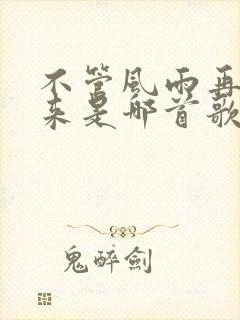 不管風雨再
來是那首歌
鬼醉劍